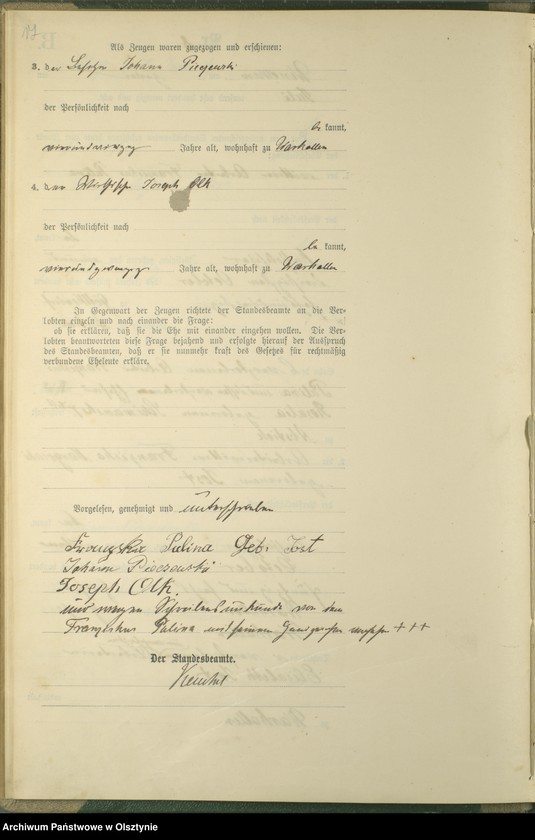 17
Als Zeugen waren zugezogen und erschienen:
3. der Johann
der Persönlichkeit nach
be kannt,
Jahre alt, wohnhaft zu Warkallen
4. der Joseph Olk
der Persönlichkeit nach
be kannt,
Jahre alt, wohnhaft zu Warkallen
In Gegenwart der Zeugen richtete der Standesbeamte an die Ver-
lobten einzeln und nach einander die Frage:
ob sie erklären, daß sie die Ehe mit einander eingehen wollen. Die Ver-
lobten beantworteten diese Frage bejahend und erfolgte hierauf der Ausspruch
des Standesbeamten, daß er sie nunmehr kraft des Gesetzes für rechtmäßig
verbundene Eheleute erkläre.
Vorgelesen, genehmigt und unterschrieben
Franziska Palina geb. Jost
Johann
Joseph Olk.
und wegen Schreibensunkunde von dem
Franziskus Palina mit seinem Handzeichen versehen +++
Der Standesbeamte.
Archiwum Państwowe w Olsztynie